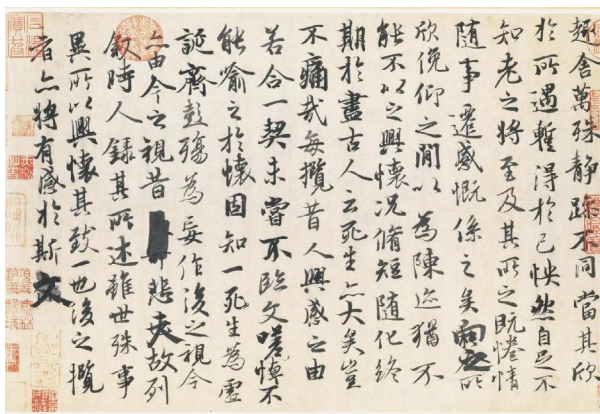 趣舍萬殊静躁不同當其欣
於所遇暫得於己怏然自足不
知老之將至及其所之既惓情
随事遷感慨係之矣向之所
欣俛仰之間以為陳迹猶不
能不以之興懷況脩短随化終
期於盡古人云死生亦大矣豈
不痛哉每攬昔人興感之由
若合一契未嘗不臨文嗟悼不
能喻之於懷固知一死生為虛
誕齊彭殤為妄作後之視今
亦由今之視昔悲夫故列
叙時人録其所述雖世殊事
異所以興懷其致一也後之攬
者亦將有感於斯文